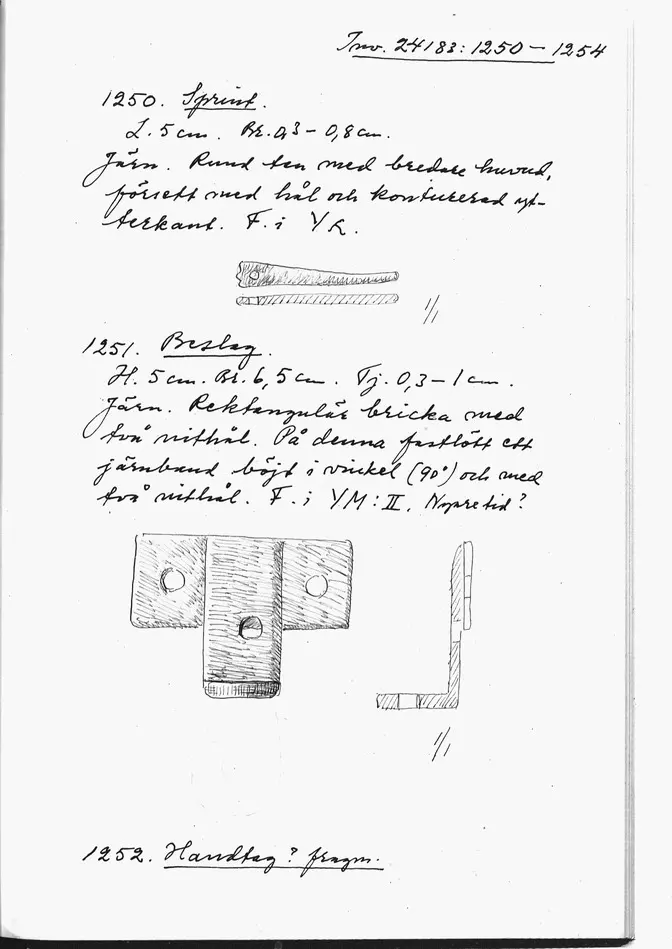 Inv. 24183:1250 – 1254
1250. Sprint.
L. 5 cm. Br. 0,3 – 0,8 cm.
Järn. Rund ten med bredare huvud,
försett med hål och konturerad yt-
terkant. F. i YK.
1/1
1251. Beslag.
H. 5 cm. Br. 6,5 cm. Tj. 0,3 – 1 cm.
Järn. Rektangulär bricka med
två nithål. På denna fastlött ett
järnband böjt i vinkel (90°) och med
två nithål. F. i YM:II. Nyare tid?
1/1
1252. Handtag? fragm.